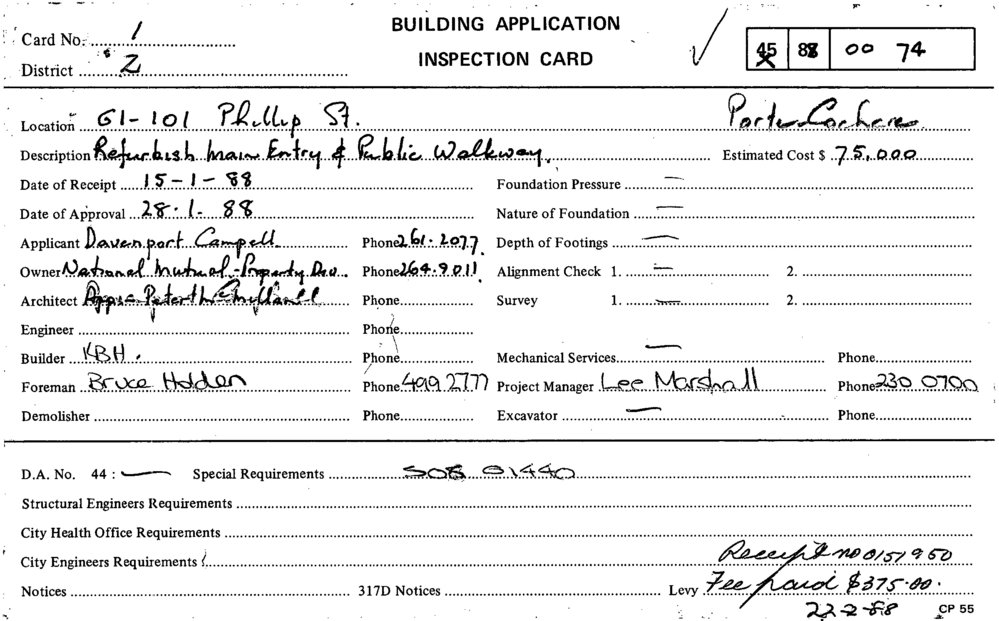 BUILDING APPLICATION
Card No. 1
INSPECTION CARD
45 88 00 74
District 2
Location 61-101 Phillip St. Porte Cochere
Description Refurbish Main Entry & Public Walkway. Estimated Cost $ 75,000
Date of Receipt 15-1-88 Foundation Pressure —
Date of Approval 28.1.88 Nature of Foundation —
Applicant Davenport Campell Phone 261.2077 Depth of Footings —
Owner National Mutual-Property Dev. Phone 264.9011 Alignment Check 1. — 2.
Architect Phone Survey 1. — 2.
Engineer Phone
Builder KBH. Phone Mechanical Services — Phone
Foreman Bruce Holden Phone 499 2777 Project Manager Lee Marshall Phone 230 0700
Demolisher Phone Excavator — Phone
D.A. No. 44 : — Special Requirements SO8 01440
Structural Engineers Requirements
City Health Office Requirements
City Engineers Requirements Receipt no 0151950
Notices 317D Notices Levy Fee paid $375.00.
22-2-88 CP 55